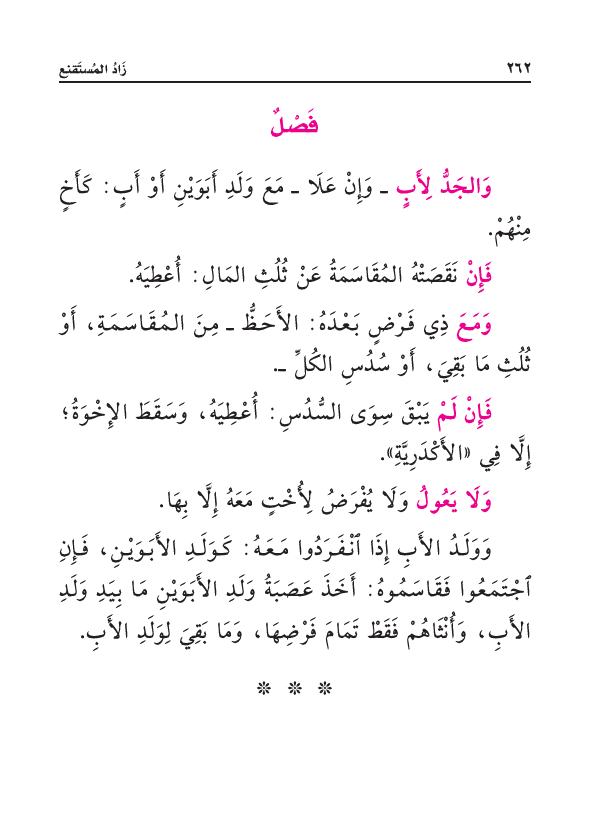 ٢٦٢ زَادُ المُستَقنِع
فَصْلٌ
وَالجَدُّ لِأَبٍ ـ وَإِنْ عَلَا ـ مَعَ وَلَدِ أَبَوَيْنِ أَوْ أَبٍ: كَأَخٍ
مِنْهُمْ.
فَإِنْ نَقَصَتْهُ المُقَاسَمَةُ عَنْ ثُلُثِ المَالِ: أُعْطِيَهُ.
وَمَعَ ذِي فَرْضٍ بَعْدَهُ: الأَحَظُّ ـ مِنَ المُقَاسَمَةِ، أَوْ
ثُلُثِ مَا بَقِيَ، أَوْ سُدُسِ الكُلِّ ـ.
فَإِنْ لَمْ يَبْقَ سِوَى السُّدُسِ: أُعْطِيَهُ، وَسَقَطَ الإِخْوَةُ؛
إِلَّا فِي «الأَكْدَرِيَّةِ».
وَلَا يَعُولُ وَلَا يُفْرَضُ لِأُخْتٍ مَعَهُ إِلَّا بِهَا.
وَوَلَدُ الأَبِ إِذَا ٱنْفَرَدُوا مَعَهُ: كَوَلَدِ الأَبَوَيْنِ، فَإِنِ
ٱجْتَمَعُوا فَقَاسَمُوهُ: أَخَذَ عَصَبَةُ وَلَدِ الأَبَوَيْنِ مَا بِيَدِ وَلَدِ
الأَبِ، وَأُنْثَاهُمْ فَقَطْ تَمَامَ فَرْضِهَا، وَمَا بَقِيَ لِوَلَدِ الأَبِ.